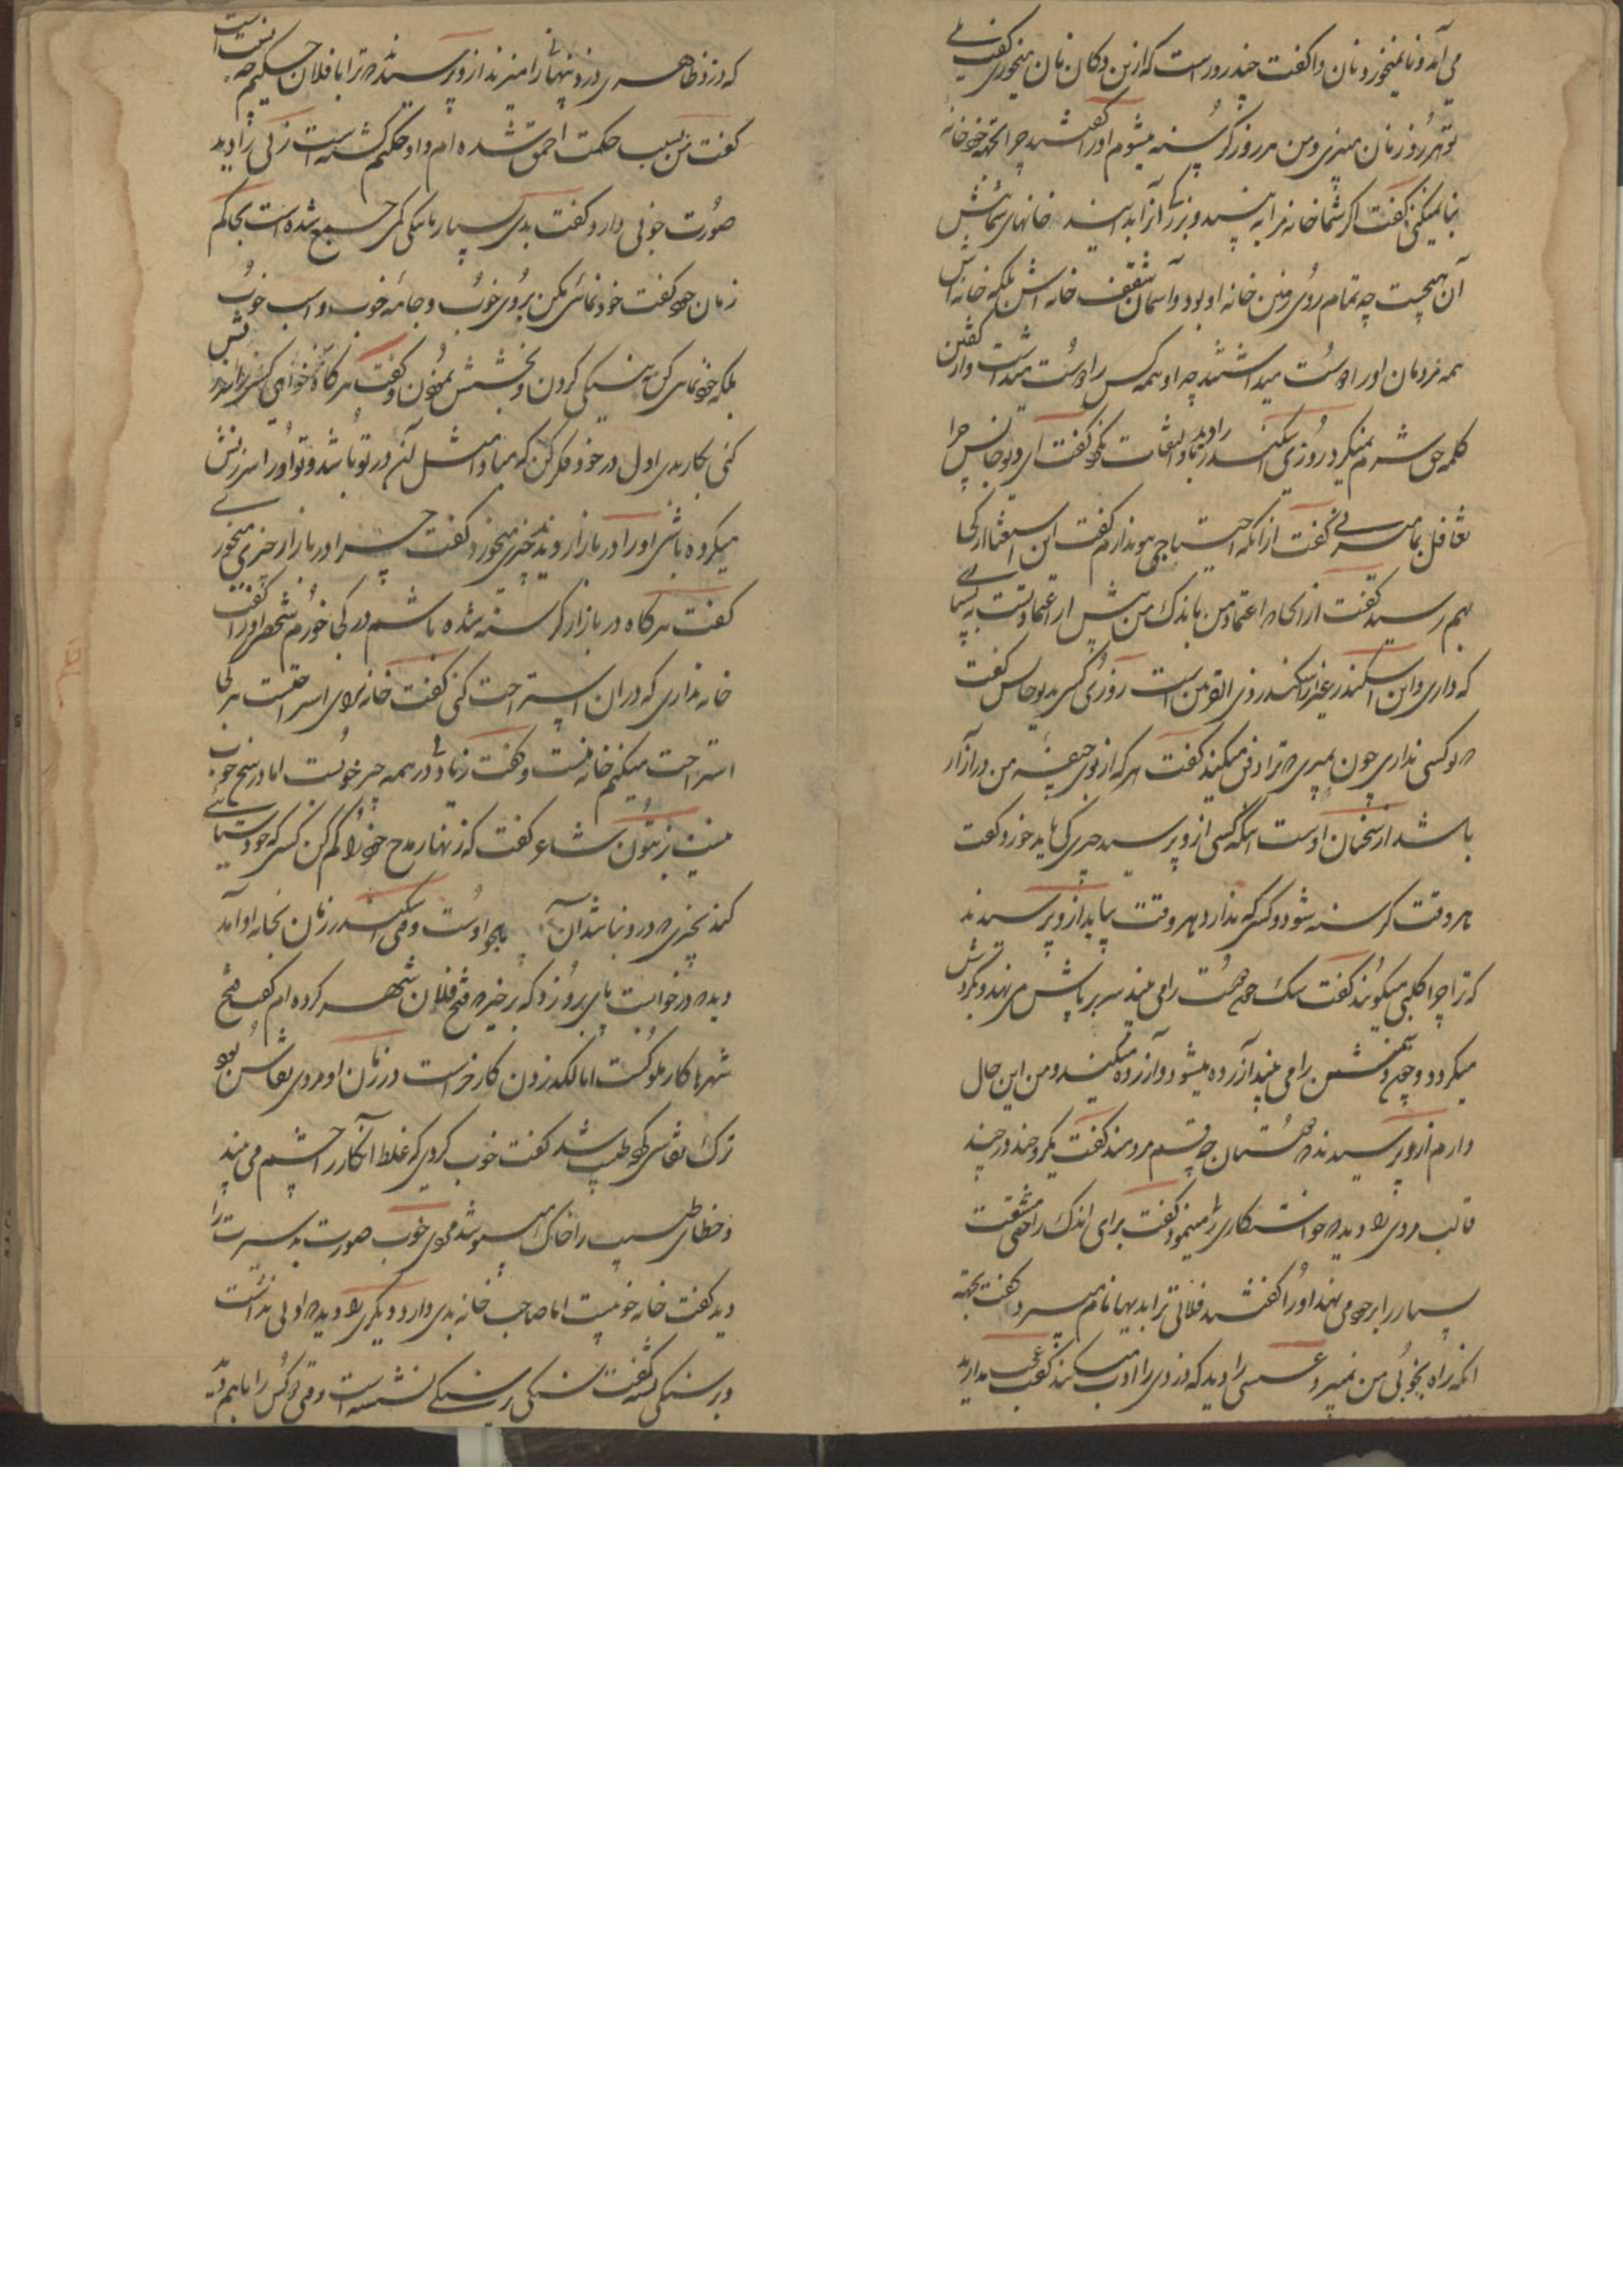 می آمد و نان میخورد نان وا گفت چند روز است که ازین دکان نان میخوری گفت بلی
تو هر روز نان میپزی و من هر روز گرسنه میشوم او را گفتند چرا بجهة خود خانه
بنا نمیکنی گفت اگر شما خانه مرا به بینید و بزرگی آنرا بدانید خانهای شما پیش
آن هیچست چه تمام روی زمین خانه او بود و آسمان سقف خانه اش بلکه خانه اش
همه مردمان او را دوست میداشتند چه او همه کس را دوست میداشت و از گفتن
کلمه حق شرم نمیکرد روزی اسکندر را دید و التفات نکرد گفت ای دیوجانس چرا
تغافل بما میزنی گفت از آنکه احتیاجی بتو ندارم گفت این استغنا از کجا
بهم رسید گفت از انجا که اعتماد من باندک من بیش از اعتماد تست به بسیاری
که داری و این اسکندر غیر اسکندر ذی القرنین است روزی کسی بدیوجانس گفت
که تو کسی نداری چون بمیری که ترا دفن میکند گفت هر که از بوی جیفه من در آزار
باشد از سخنان اوست آنکه کسی از و پرسید چیزی کی باید خورد گفت
هر وقت گرسنه شود و کسی که ندارد هر وقت بیابد از و پرسیدند
که ترا چرا کلبی میگویند گفت سگ چون دوست را می بیند سر بر پاش می نهد و گردش
میگردد و چون دشمن را می بیند آزرده میشود و آزرده میکند و من این حال
دارم از و پرسیدند که دوستان چه قسم مردمند گفت یکروحند در چند
قالب مردی را دید که خواستگاری زنی مینمود گفت برای اندک راحتی مشقت
بسیار را بر خود می نهد او را گفتند فلانی ترا به بدیها نام میبرد گفت بجهة
آنکه راه بخوبی من نمیبرد عسسی را دید که دزدی را ادب میکند گفت عجب مدارید
که دزد ظاهری دزد پنهانی را میزند از و پرسیدند که ترا با فلان حکیم چه نسبت است
گفت من بسبب حکمت احمق شده ام و او حکیم گشته است زنی را دید
صورت خوبی دارد گفت بدی بسیار با نیکی کمی جمع شده است بحاکم
زمان خود گفت خودنمائی مکن بروی خوب و جامه خوب و اسب خوب
بلکه خودنمائی کن به نیکی کردن و بخشش نمودن و گفت هر گاه خواهی کسی را سرزنش
کنی بکار بدی اول در خود فکر کن که مبادا مثل آن در تو باشد و تو او را سرزنش
میکرده باشی او را در بازار دیدند چیزی میخورد گفتند چرا در بازار چیزی میخوری
گفت هر گاه در بازار گرسنه شده باشم در کجا خورم شخصی او را گفت
خانه نداری که در آن استراحت کنی گفت خانه برای استراحتست هر کجا
استراحت میکنم خانه منست و گفت زیادتی در همه چیز خوبست اما در سخن خوب
نیست زینون شاعر گفت که زنهار مدح خود را کم کن کسی که خود ستائی
کند بچیزی که در و نباشد آن هجو اوست وقتی اسکندر زمان بخانه او آمد
دید که در خوابست پای برو زد که برخیز که فتح فلان شهر کرده ام گفت فتح
شهرها کار ملوکست اما لگد زدن کار خرانست در زمان او مردی نقاش بود
ترک نقاشی کرد طبیب شد گفت خوب کردی که غلط آن کار را چشم می بیند
و خطای طبیب را خاک میپوشد مردی خوب صورت بد سیرت را
دید گفت خانه خوبیست اما صاحب خانه بدی دارد دیگری را دید که ادبی نداشت
و بر سنگی نشسته گفت سنگی بر سنگی نشسته است وقتی دو کس را باهم دید